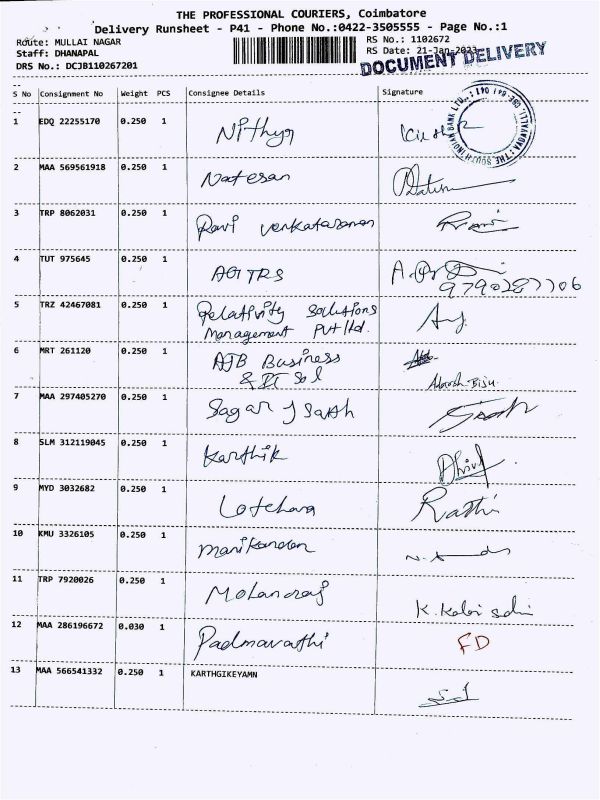 THE PROFESSIONAL COURIERS, Coimbatore
Delivery Runsheet - P41 - Phone No.:0422-3505555 - Page No.:1
Route: MULLAI NAGAR
RS No.: 1102672
Staff: DHANAPAL
RS Date: 21-Jan-2023
DRS No.: DCJB110267201
DOCUMENT DELIVERY
S No Consignment No Weight PCS Consignee Details Signature
1 EDQ 22255170 0.250 1 Nithya
THE SOUTH INDIAN BANK LTD.,
2 MAA 569561918 0.250 1 Natesan
3 TRP 8062031 0.250 1 Ravi Venkataraman Ravi
4 TUT 975645 0.250 1
9790287706
5 TRZ 42467081 0.250 1 Relativity Solutions
Management Pvt ltd.
6 MRT 261120 0.250 1 AJB Business
& IT Sol
7 MAA 297405270 0.250 1 Sagar J Shah
8 SLM 312119045 0.250 1 Karthik
9 MYD 3032682 0.250 1 Rathi
10 KMU 3326105 0.250 1 Manikandan
11 TRP 7920026 0.250 1 Mohanraj
12 MAA 286196672 0.030 1 Padmavathi FD
13 MAA 566541332 0.250 1 KARTHGIKEYAMN